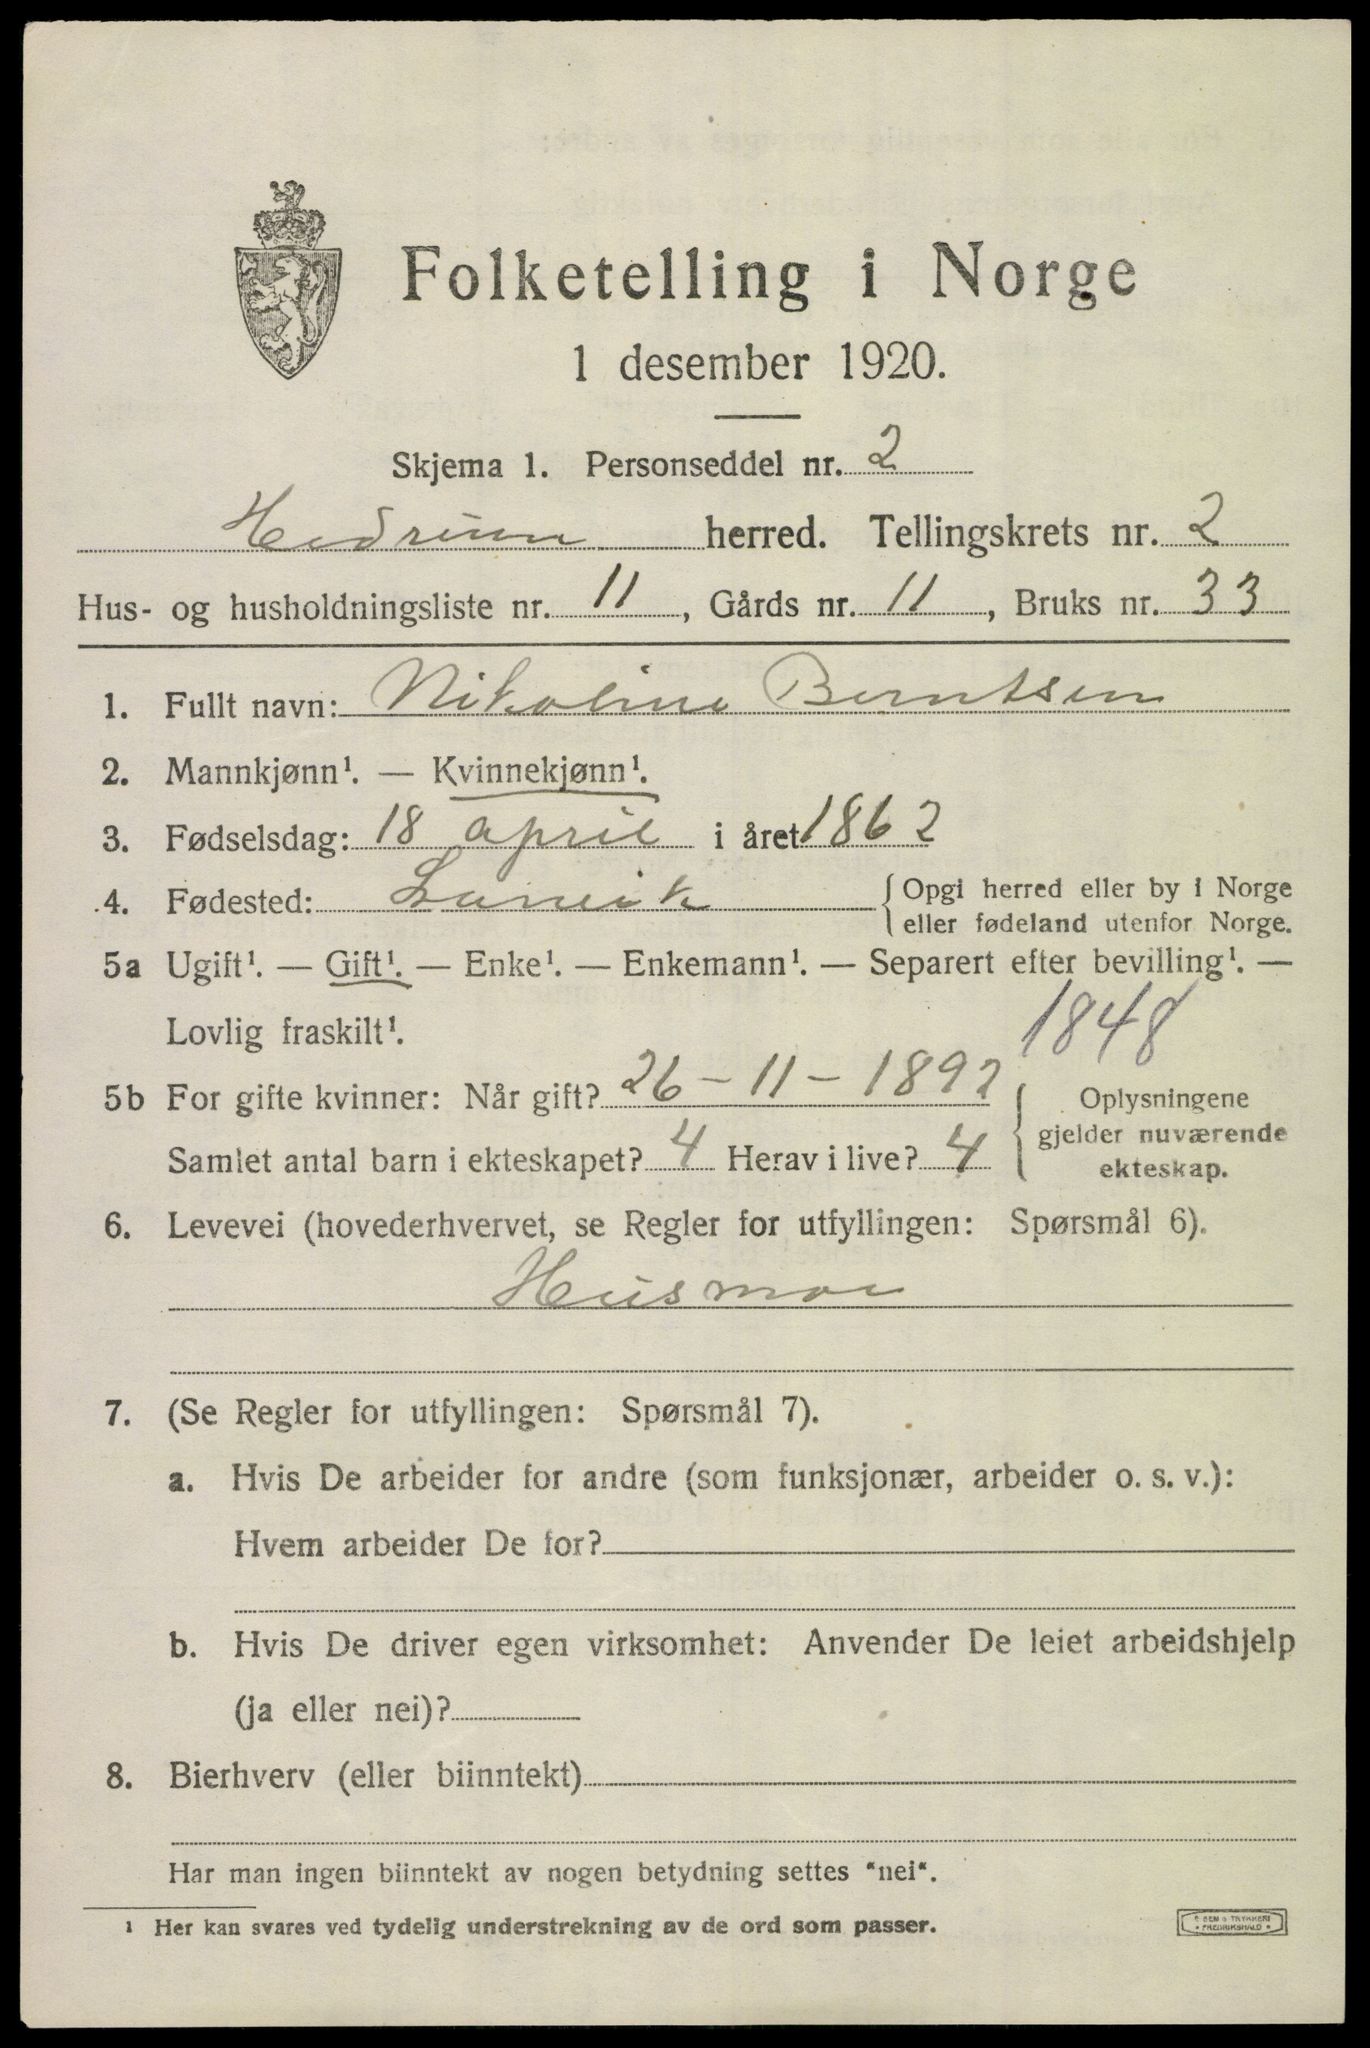 Folketelling i Norge
1 desember 1920.
Skjema 1. Personseddel nr. 2
Hedrum herred. Tellingskrets nr. 2
Hus- og husholdningsliste nr. 11, Gårds nr. 11, Bruks nr. 33
1. Fullt navn: Nikoline Berntsen
2. Mannkjønn¹. — Kvinnekjønn¹.
3. Fødselsdag: 18 april i året 1862
4. Fødested: Larvik {Opgi herred eller by i Norge
eller fødeland utenfor Norge.
5a Ugift¹. — Gift¹. — Enke¹. — Enkemann¹. — Separert efter bevilling¹. —
Lovlig fraskilt¹. 1848
5b For gifte kvinner: Når gift? 26-11-1892 { Oplysningene
gjelder nuværende
Samlet antal barn i ekteskapet? 4 Herav i live? 4 ekteskap.
6. Levevei (hovederhvervet, se Regler for utfyllingen: Spørsmål 6).
Husmor
7. (Se Regler for utfyllingen: Spørsmål 7).
a. Hvis De arbeider for andre (som funksjonær, arbeider o. s. v.):
Hvem arbeider De for?
b. Hvis De driver egen virksomhet: Anvender De leiet arbeidshjelp
(ja eller nei)?
8. Bierhverv (eller biinntekt)
Har man ingen biinntekt av nogen betydning settes "nei".
¹ Her kan svares ved tydelig understrekning av de ord som passer.
TRYKKERI
FREDRIKSHALD